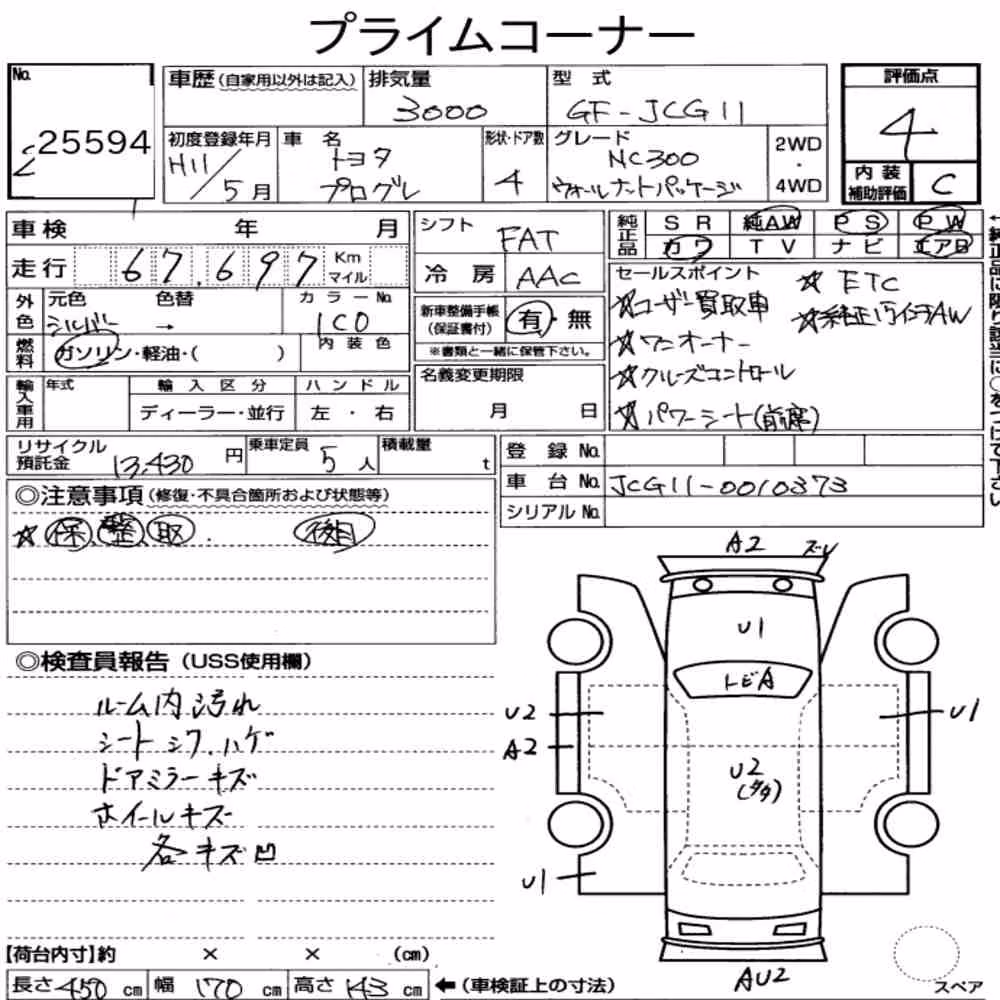 プライムコーナー
No.
25594
車歴(自家用以外は記入)
排気量
3000
型式
GF-JCG11
評価点
4
内装
補助評価
C
初度登録年月
H11/5月
車名
トヨタ
プログレ
形状・ドア数
4
グレード
NC300
ウォールナットパッケージ
2WD
・
4WD
車検 年 月
走行 67,697 Km
マイル
外色
元色 色替
シルバー →
カラーNo.
1C0
内装色
燃料
ガソリン・軽油・( )
輸入車用
年式
輸入区分
ディーラー・並行
ハンドル
左・右
シフト
FAT
冷房
AAC
新車整備手帳
(保証書付)
有・無
※書類と一緒に保管下さい。
名義変更期限
月 日
純正品
SR 純AW PS PW
カワ TV ナビ エアB
セールスポイント
☆ユーザー買取車
☆ETC
☆ワンオーナー
☆純正15インチAW
☆クルーズコントロール
☆パワーシート(前席)
←純正品に限り該当に○をつけて下さい
リサイクル
預託金
13,430円
乗車定員
5人
積載量
t
登録No.
車台No.
JCG11-0010373
シリアルNo.
◎注意事項(修復・不具合箇所および状態等)
☆保、整、取. 後日
◎検査員報告(USS使用欄)
ルーム内汚れ
シートシワ、ハゲ
ドアミラーキズ
ホイールキズ
各キズ凹
A2
ズレ
U1
トビA
U2
A2
U1
U2
U1
AU2
スペア
【荷台内寸】約 × × (cm)
長さ450cm
幅170cm
高さ143cm
←(車検証上の寸法)